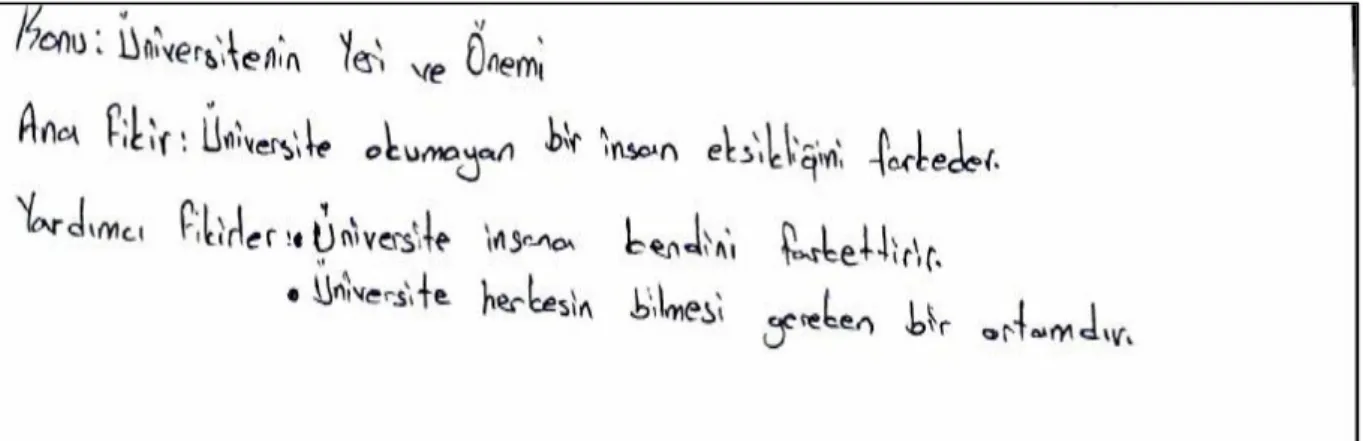 Konu: Üniversitenin Yeri ve Önemi
Ana Fikir: Üniversite okumayan bir insan eksikliğini farkeder.
Yardımcı Fikirler: • Üniversite insana kendini farkettirir.
• Üniversite herkesin bilmesi gereken bir ortamdır.